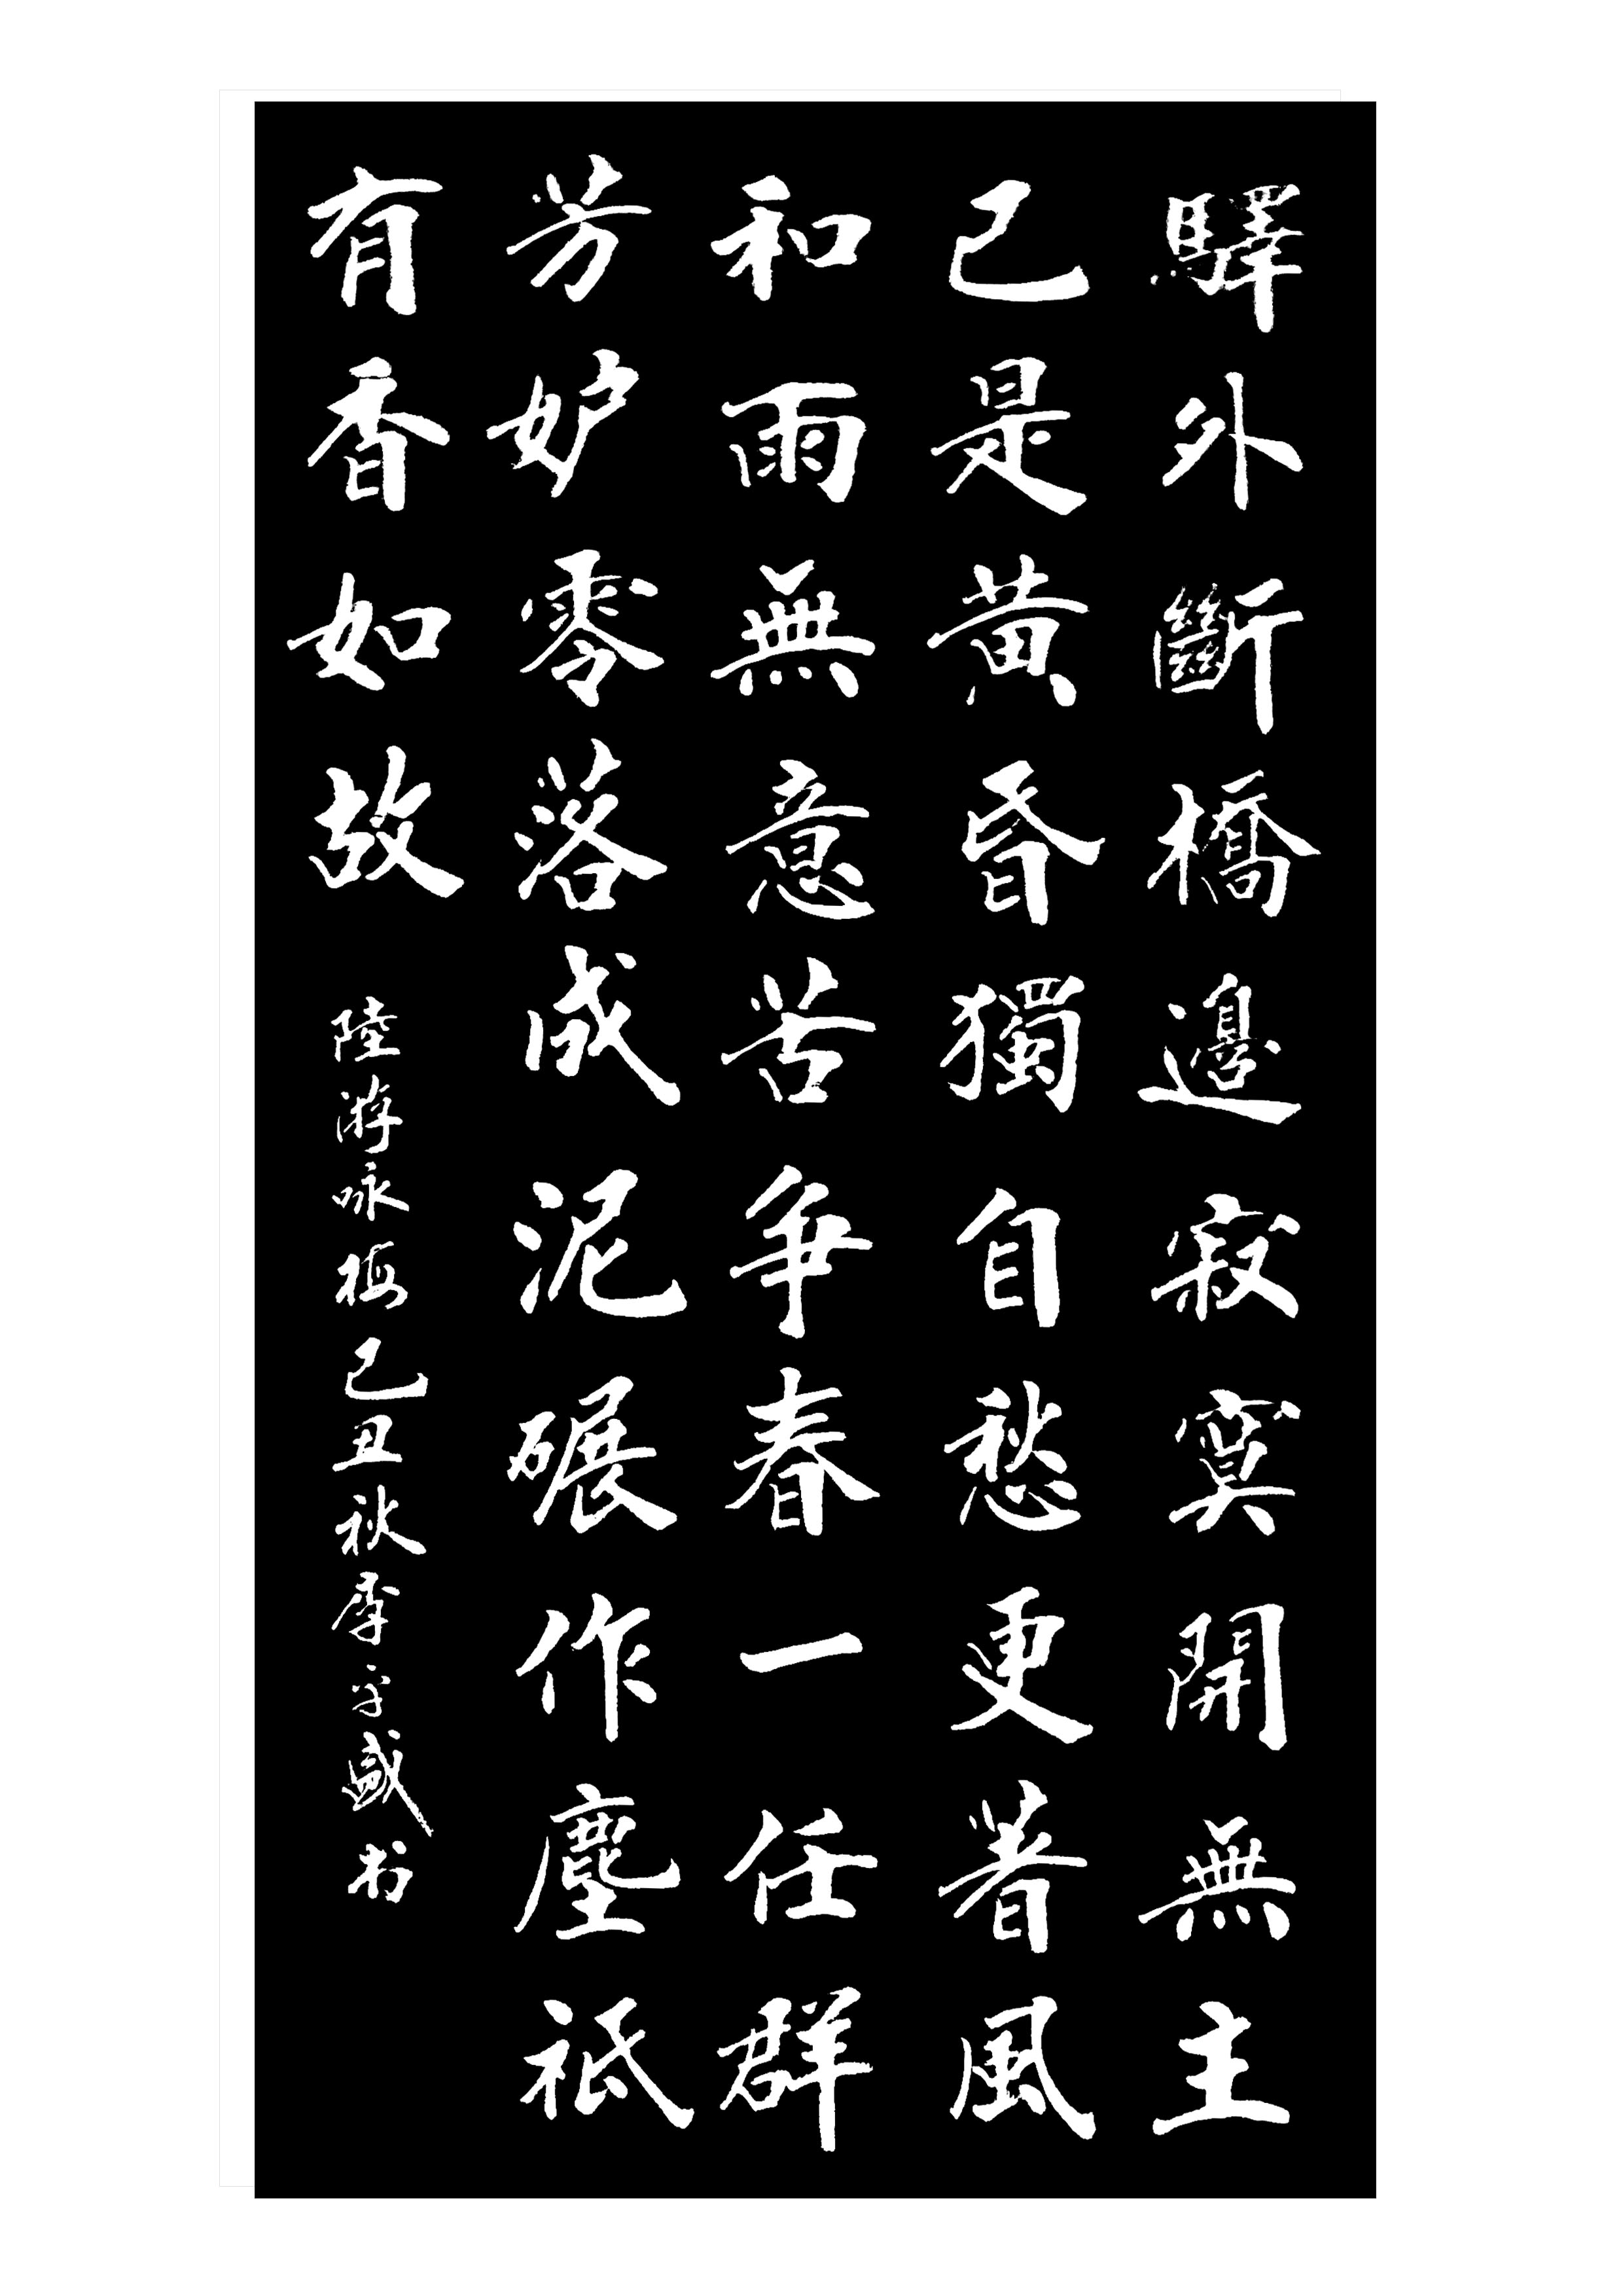 驛外斷橋邊寂寞開無主
已是黃昏獨自愁更著風
和雨無意苦爭春一任群
芳妒零落成泥碾作塵祇
有香如故
陸游咏梅己丑秋